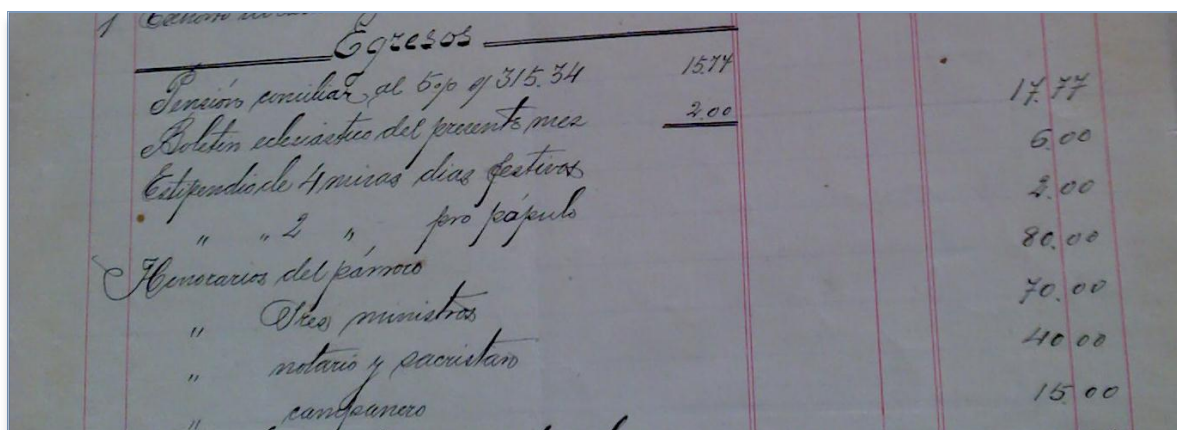 1
Egresos
Pensión conciliar al 5 o/o s/ 315.34 15.77
Boletin eclesiastico del presente mez 2.00 17.77
Estipendio de 4 misas dias festivos 6.00
" " 2 " pro pópulo 2.00
Honorarios del párroco 80.00
" Tres ministros 70.00
" notario y sacristan 40.00
" campanero 15.00